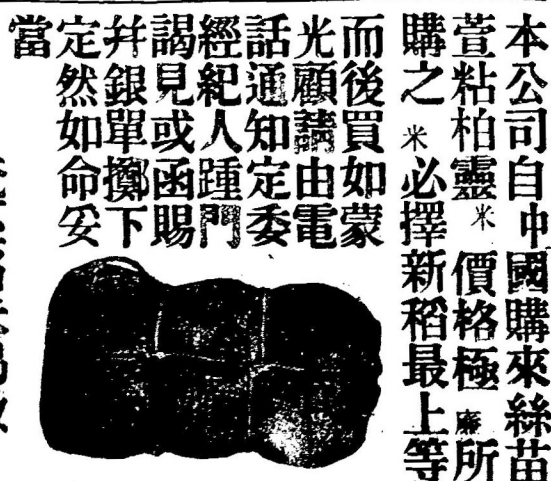 本公司自中國購來絲苗
萱粘柏靈米價格極廉所
購之米必擇新稻最上等
而後買如蒙
光顧請由電
話通知定委
經紀人踵門
謁見或函賜
幷銀單擲下
定然如命妥
當